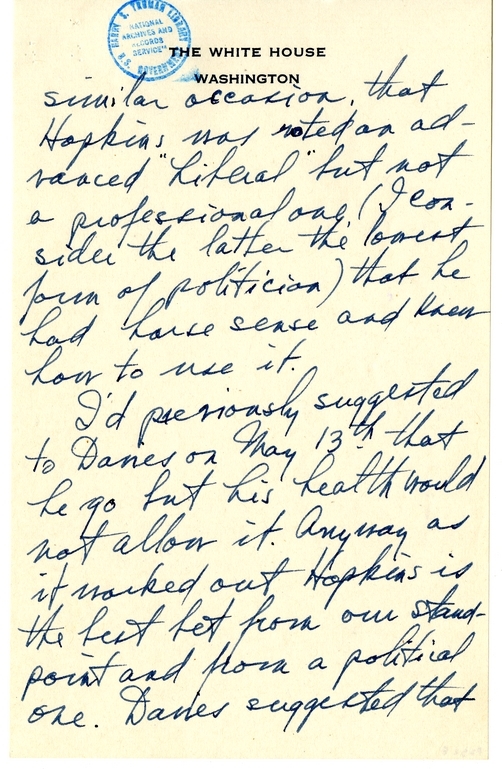 HARRY S. TRUMAN LIBRARY
NATIONAL
ARCHIVES AND
RECORDS
SERVICE
U.S. GOVERNMENT
THE WHITE HOUSE
WASHINGTON
similar occasion, that
Hopkins was rated an ad-
vanced "Liberal" but not
a professional one (I con-
sider the latter the lowest
form of politician) that he
had horse sense and knew
how to use it.
I'd previously suggested
to Davies on May 13th that
he go but his health would
not allow it. Anyway as
it worked out Hopkins is
the best bet from our stand-
point and from a political
one. Davies suggested that